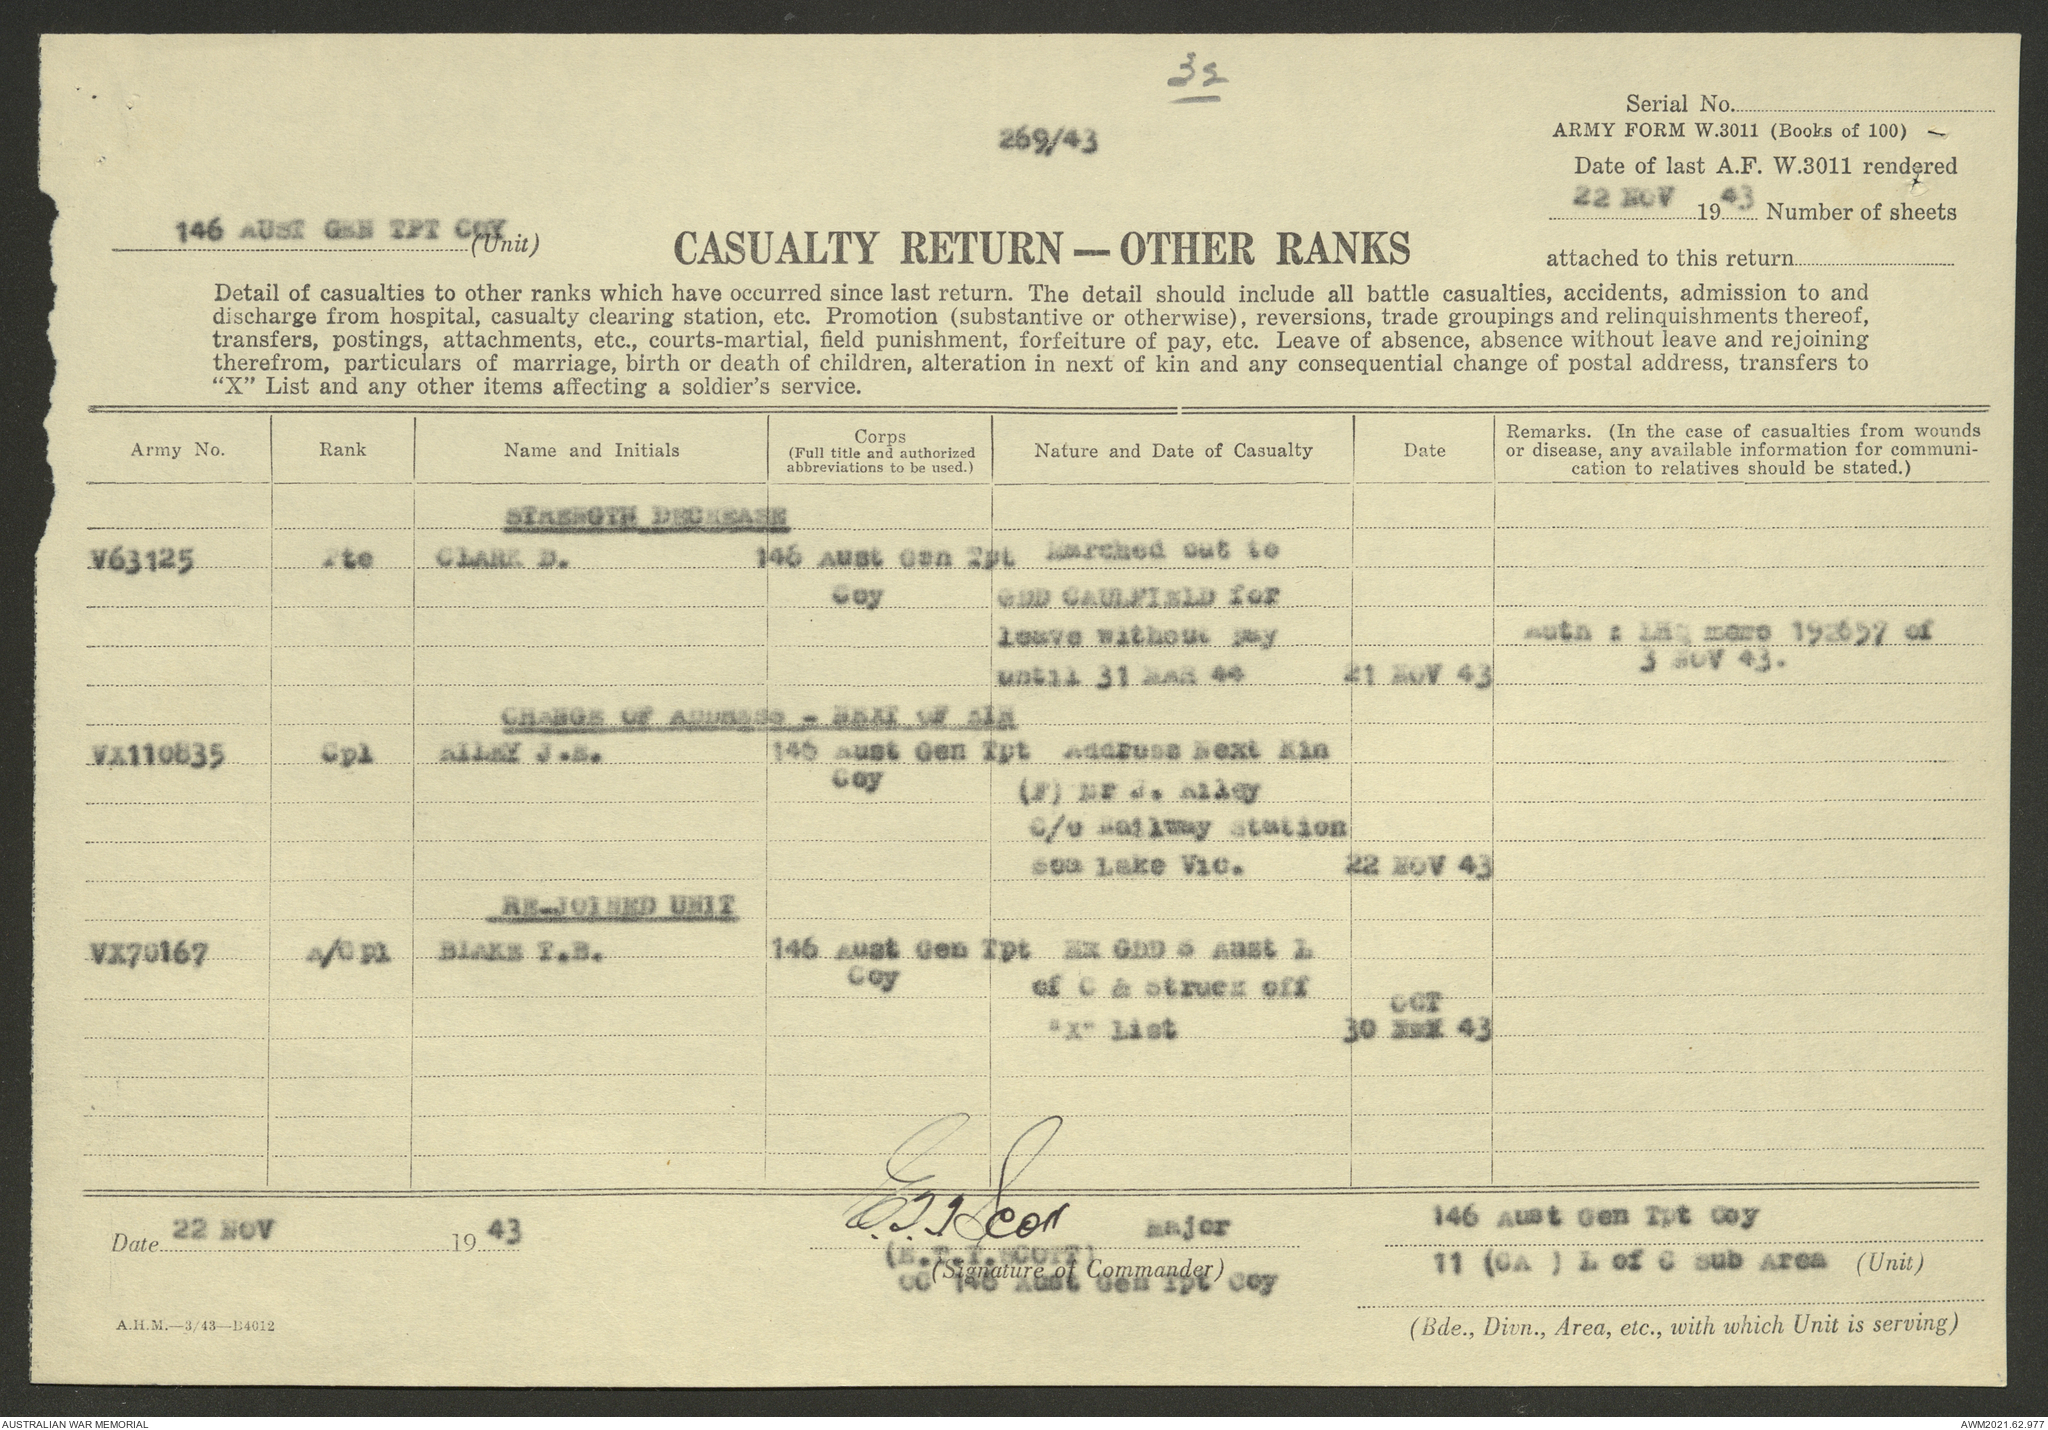 32
269/43
Serial No.
ARMY FORM W.3011 (Books of 100)
Date of last A.F. W.3011 rendered
22 NOV 1943 Number of sheets
attached to this return
146 AUST GEN TPT COY (Unit)
CASUALTY RETURN — OTHER RANKS
Detail of casualties to other ranks which have occurred since last return. The detail should include all battle casualties, accidents, admission to and
discharge from hospital, casualty clearing station, etc. Promotion (substantive or otherwise), reversions, trade groupings and relinquishments thereof,
transfers, postings, attachments, etc., courts-martial, field punishment, forfeiture of pay, etc. Leave of absence, absence without leave and rejoining
therefrom, particulars of marriage, birth or death of children, alteration in next of kin and any consequential change of postal address, transfers to
“X” List and any other items affecting a soldier’s service.
Army No. Rank Name and Initials Corps (Full title and authorized abbreviations to be used.) Nature and Date of Casualty Date Remarks. (In the case of casualties from wounds or disease, any available information for communi- cation to relatives should be stated.)
STRENGTH DECREASE
V63125 Pte CLARK D. 146 Aust Gen Tpt Marched out to
Coy GDD CAULFIELD for
leave without pay Auth : LHQ memo 192657 of
until 31 MAR 44 21 NOV 43 3 NOV 43.
CHANGE OF ADDRESS - NEXT OF KIN
VX110835 Cpl RILEY J.E. 146 Aust Gen Tpt Address Next Kin
Coy (F) Mr J. Riley
C/o Railway Station
Sea Lake Vic. 22 NOV 43
RE-JOINED UNIT
VX70167 A/Cpl BLAKE T.B. 146 Aust Gen Tpt Ex GDD 8 Aust L
Coy of C & Struck off
OCT
"X" List 30 43
Date 22 NOV 1943
E.T.I. Scott Major
(E.T.I.SCOTT)
(Signature of Commander)
OC 146 Aust Gen Tpt Coy
146 Aust Gen Tpt Coy
11 (CA ) L of C Sub Area (Unit)
(Bde., Divn., Area, etc., with which Unit is serving)
A.H.M.—3/43—B4012
AUSTRALIAN WAR MEMORIAL
AWM2021.62.977